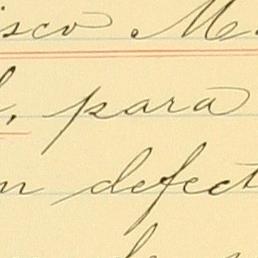 isco M.
, para
n defect